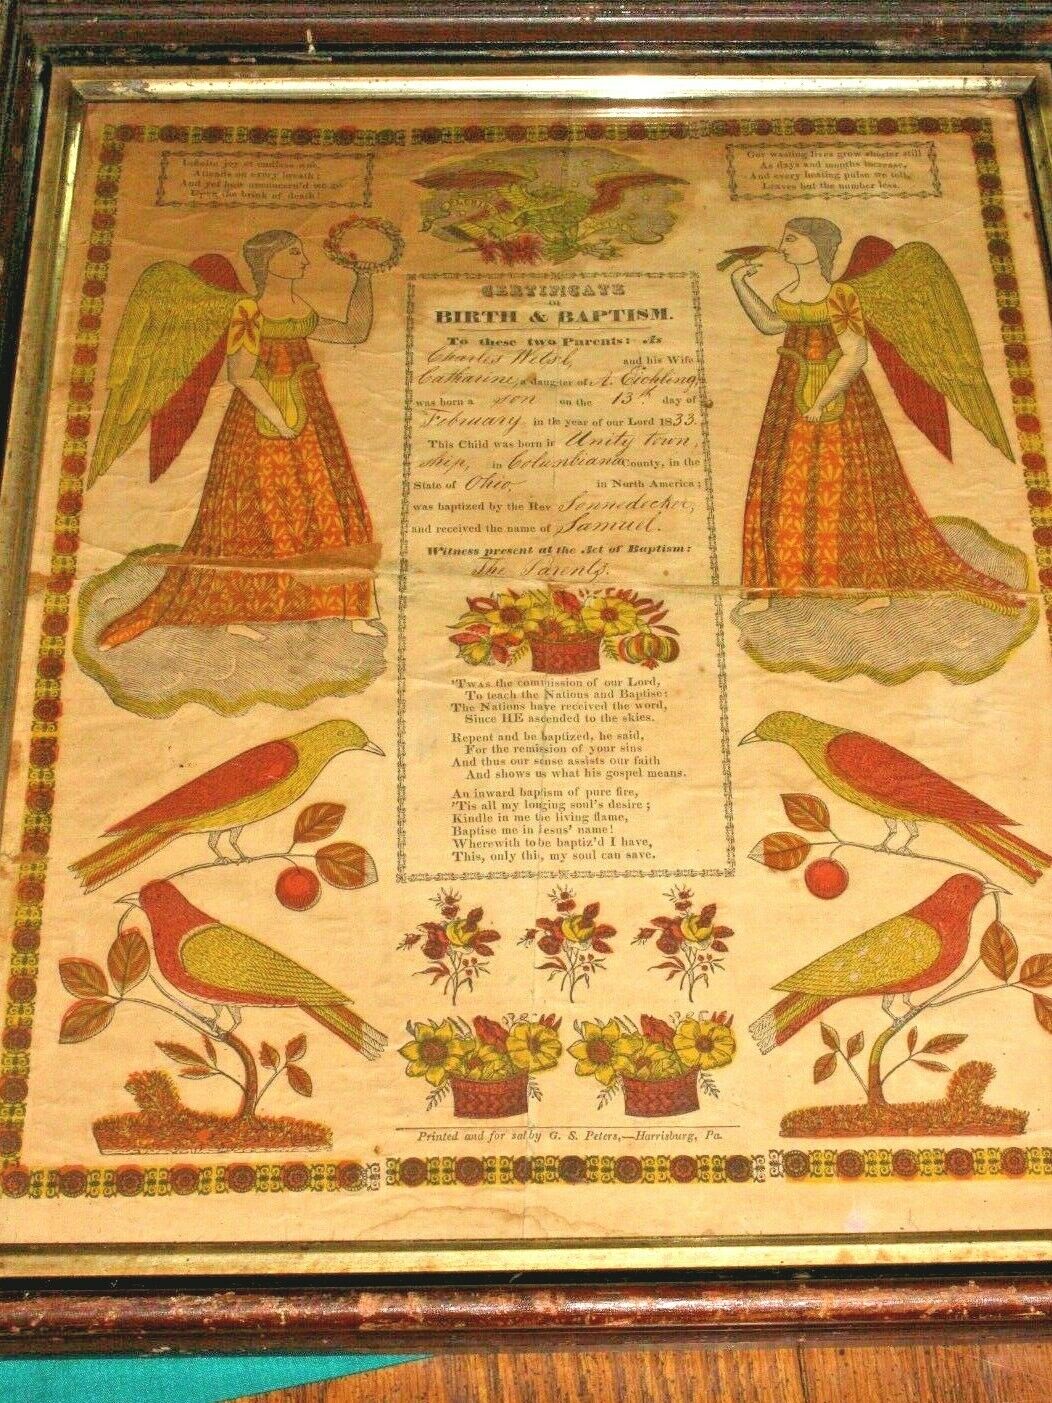 Infinite joy or endless woe,
Attends on every breath;
And yet how unconcern'd we go
Upon the brink of death!
Our wasting lives grow shorter still
As days and months increase,
And every beating pulse we tell,
Leaves but the number less.
CERTIFICATE
OF
BIRTH & BAPTISM.
To these two Parents: As
Charles and his Wife
Catharine, a daugter of A. Eichling,
was born a son on the 13th day of
February in the year of our Lord 1833.
This Child was born in Unity town
ship, in Columbiana County, in the
State of Ohio, in North America;
was baptized by the Rev Sonnedecker,
and received the name of Samuel.
Witness present at the Act of Baptism:
The Parents.
'Twas the commission of our Lord,
To teach the Nations and Baptise:
The Nations have received the word,
Since HE ascended to the skies.
Repent and be baptized, he said,
For the remission of your sins
And thus our sense assists our faith
And shows us what his gospel means.
An inward baptism of pure fire,
'Tis all my longing soul's desire;
Kindle in me the living flame,
Baptise me in Jesus' name!
Wherewith to be baptiz'd I have,
This, only this, my soul can save.
Printed and for sal by G. S. Peters,—Harrisburg, Pa.